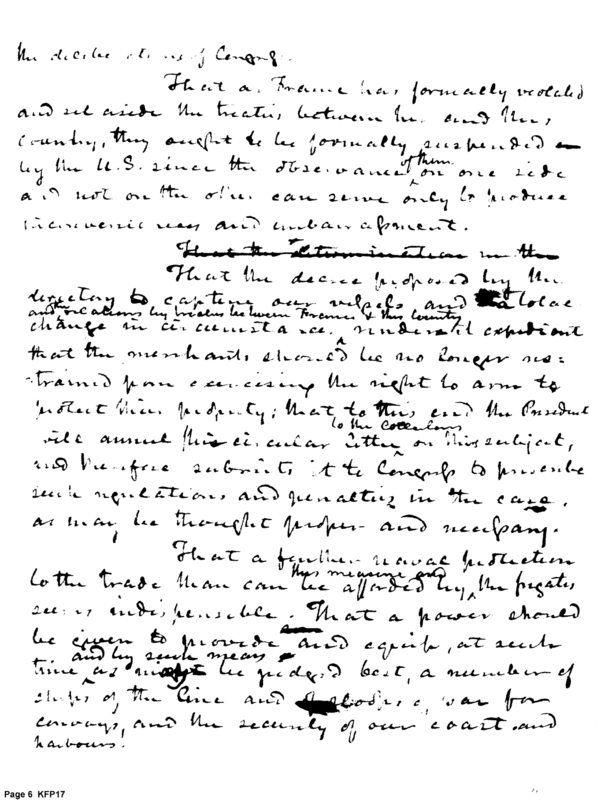 the deliberations of Congress.
That as France has formally violated
and set aside the treaties between her and this
country, they ought to be formally suspended
by the U.S. since the observance of them on one side
and not on the other can serve only to produce
inconveniences and embarrassment.
That the determination in the
That the decree proposed by the
directory to capture our vessels and
and relations by treaties between France & this Country
change in circumstances renders it expedient
that the merchants should be no longer res=
-trained from exercising the right to arm to
protect their property; that to this end the President
to the Collectors
will annul his circular letter on this subject,
and therefore submits it to Congress to prescribe
such regulations and penalties in the case,
as may be thought proper and necessary.
That a further naval protection
this measure and
to the trade than can be afforded by the frigates
seems indispensible. That a power should
be given to provide and equip, at such
and by such means
time as might be judged best, a number of
ships of the line and sloops of war for
convoys, and the security of our coast and
harbours.
Page 6 KFP17